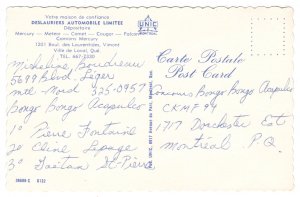 Votre maison de confiance
DESLAURIERS AUTOMOBILE LIMITEE
Dépositaire
Mercury - Meteor - Comet - Cougar - Falcon
Camions Mercury
1201 Boul. des Laurentides, Vimont
Ville de Laval, Qué.
TEL. 667-2330
UNIC
Micheline Boudreau
5699 Blvd. Léger
Mtl-Nord 325-0957
Bongo Bongo Acapulco
1° Pierre Fontaine
2° Cline Lepage
3° Gaëtan St-Pierre
DR609-C D132
Carte Postale
Post Card
Concours Bongo Bongo Acapulco
CKMF 94
1717 Dorchester Est
Montréal P.Q.